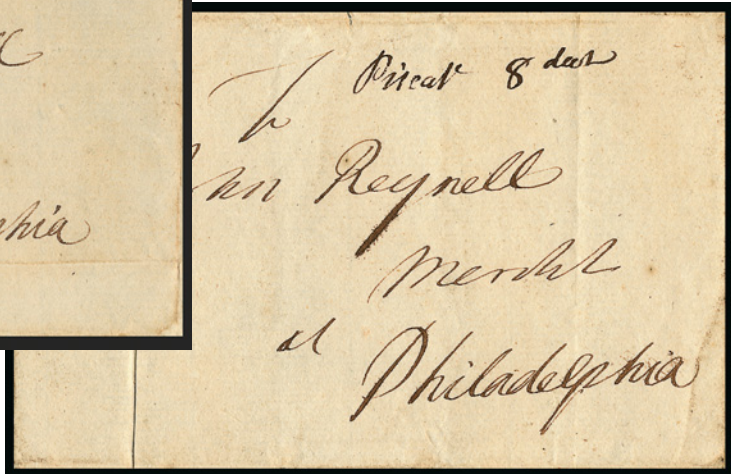 Piscat 8 dwt
To
hn Reynell
Mercht
at
Philadelphia
hia